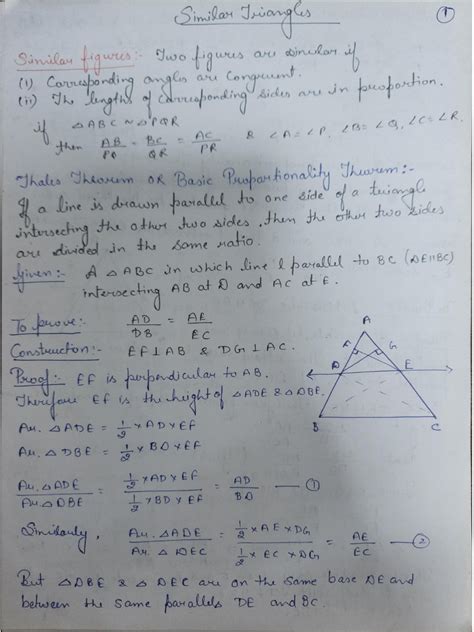 Similar Triangles
1
Similar figures:- Two figures are similar if
(i) Corresponding angles are congruent.
(ii) The lengths of corresponding sides are in proportion.
if △ABC ~ △PQR
then AB/PQ = BC/QR = AC/PR & ∠A = ∠P, ∠B = ∠Q, ∠C = ∠R.
Thales Theorem OR Basic Proportionality Theorem:-
If a line is drawn parallel to one side of a triangle
intersecting the other two sides, then the other two sides
are divided in the same ratio.
Given:- A △ABC in which line l parallel to BC (DE||BC)
intersecting AB at D and AC at E.
To prove:- AD/DB = AE/EC
Construction:- EF⊥AB & DG⊥AC.
Proof:- EF is perpendicular to AB.
Therefore EF is the height of △ADE & △DBE.
Ar. △ADE = 1/2 × AD × EF
Ar. △DBE = 1/2 × BD × EF
Ar. △ADE / Ar. △DBE = 1/2 × AD × EF / 1/2 × BD × EF = AD/BD — 1
Similarly, Ar. △ADE / Ar. △DEC = 1/2 × AE × DG / 1/2 × EC × DG = AE/EC — 2
But △DBE & △DEC are on the same base DE and
between the same parallels DE and BC.
A
F
G
D
E
B
C